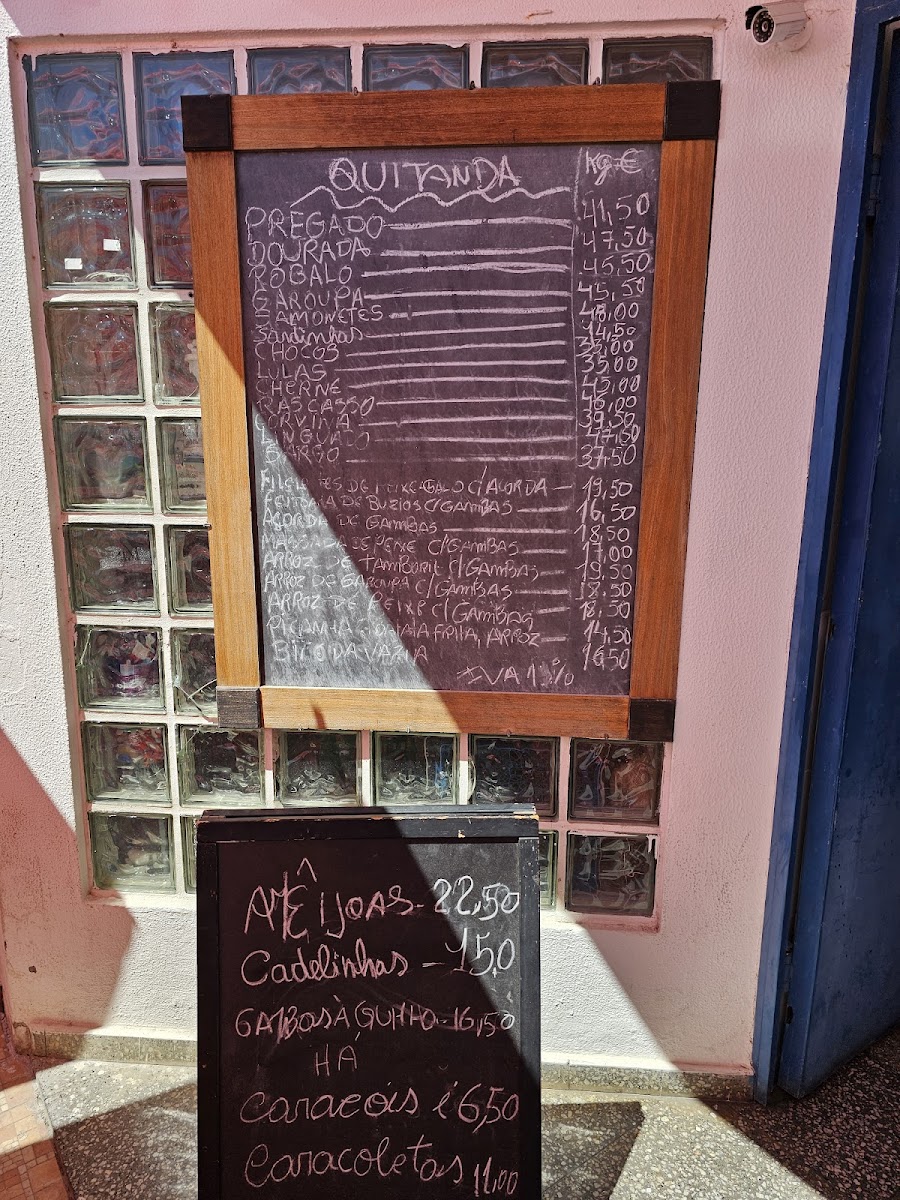 QUITANDA KG €
PREGADO 41,50
DOURADA 47,50
ROBALO 45,50
GAROUPA 45,50
SAMONETES 48,00
Sardinhas 14,50
CHOCOS 33,00
LULAS 35,00
CHERNE 45,00
RASCASSO 46,00
CORVINA 39,50
LINGUADO 47,50
SARGO 37,50
FILETES DE PEIXE-GALO C/AÇORDA 19,50
FEIJOADA DE BUZIOS C/GAMBAS 16,50
AÇORDA DE GAMBAS 18,50
MASSADA DE PEIXE C/GAMBAS 17,00
ARROZ DE TAMBORIL C/GAMBAS 19,50
ARROZ DE GAROUPA C/GAMBAS 18,50
ARROZ DE PEIXE C/GAMBAS 18,50
PICANHA BATATA FRITA, ARROZ 14,50
BIFE DA VAZIA 16,50
IVA 13%
AMÊIJOAS - 22,50
Cadelinhas - 15,0
GAMBAS À GUILHO - 16,50
HÁ
Caracóis 6,50
Caracoletas 11,00